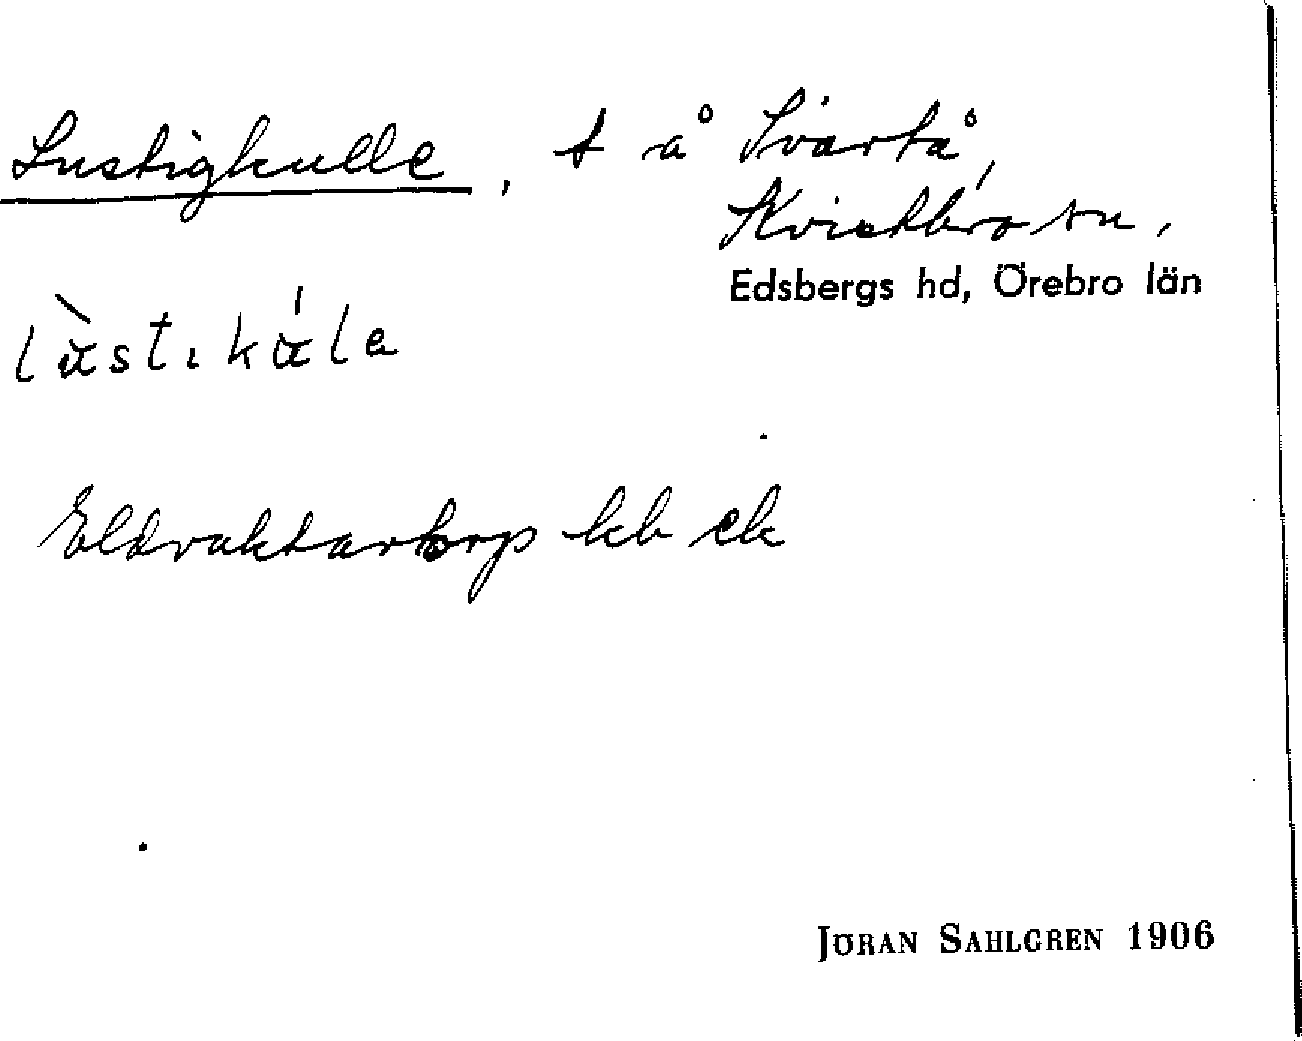 Lustigkulle, t å Svartå,
Kvistbro sn,
Edsbergs hd, Örebro län
Eldvaktartorp kb ek
JÖRAN SAHLGREN 1906